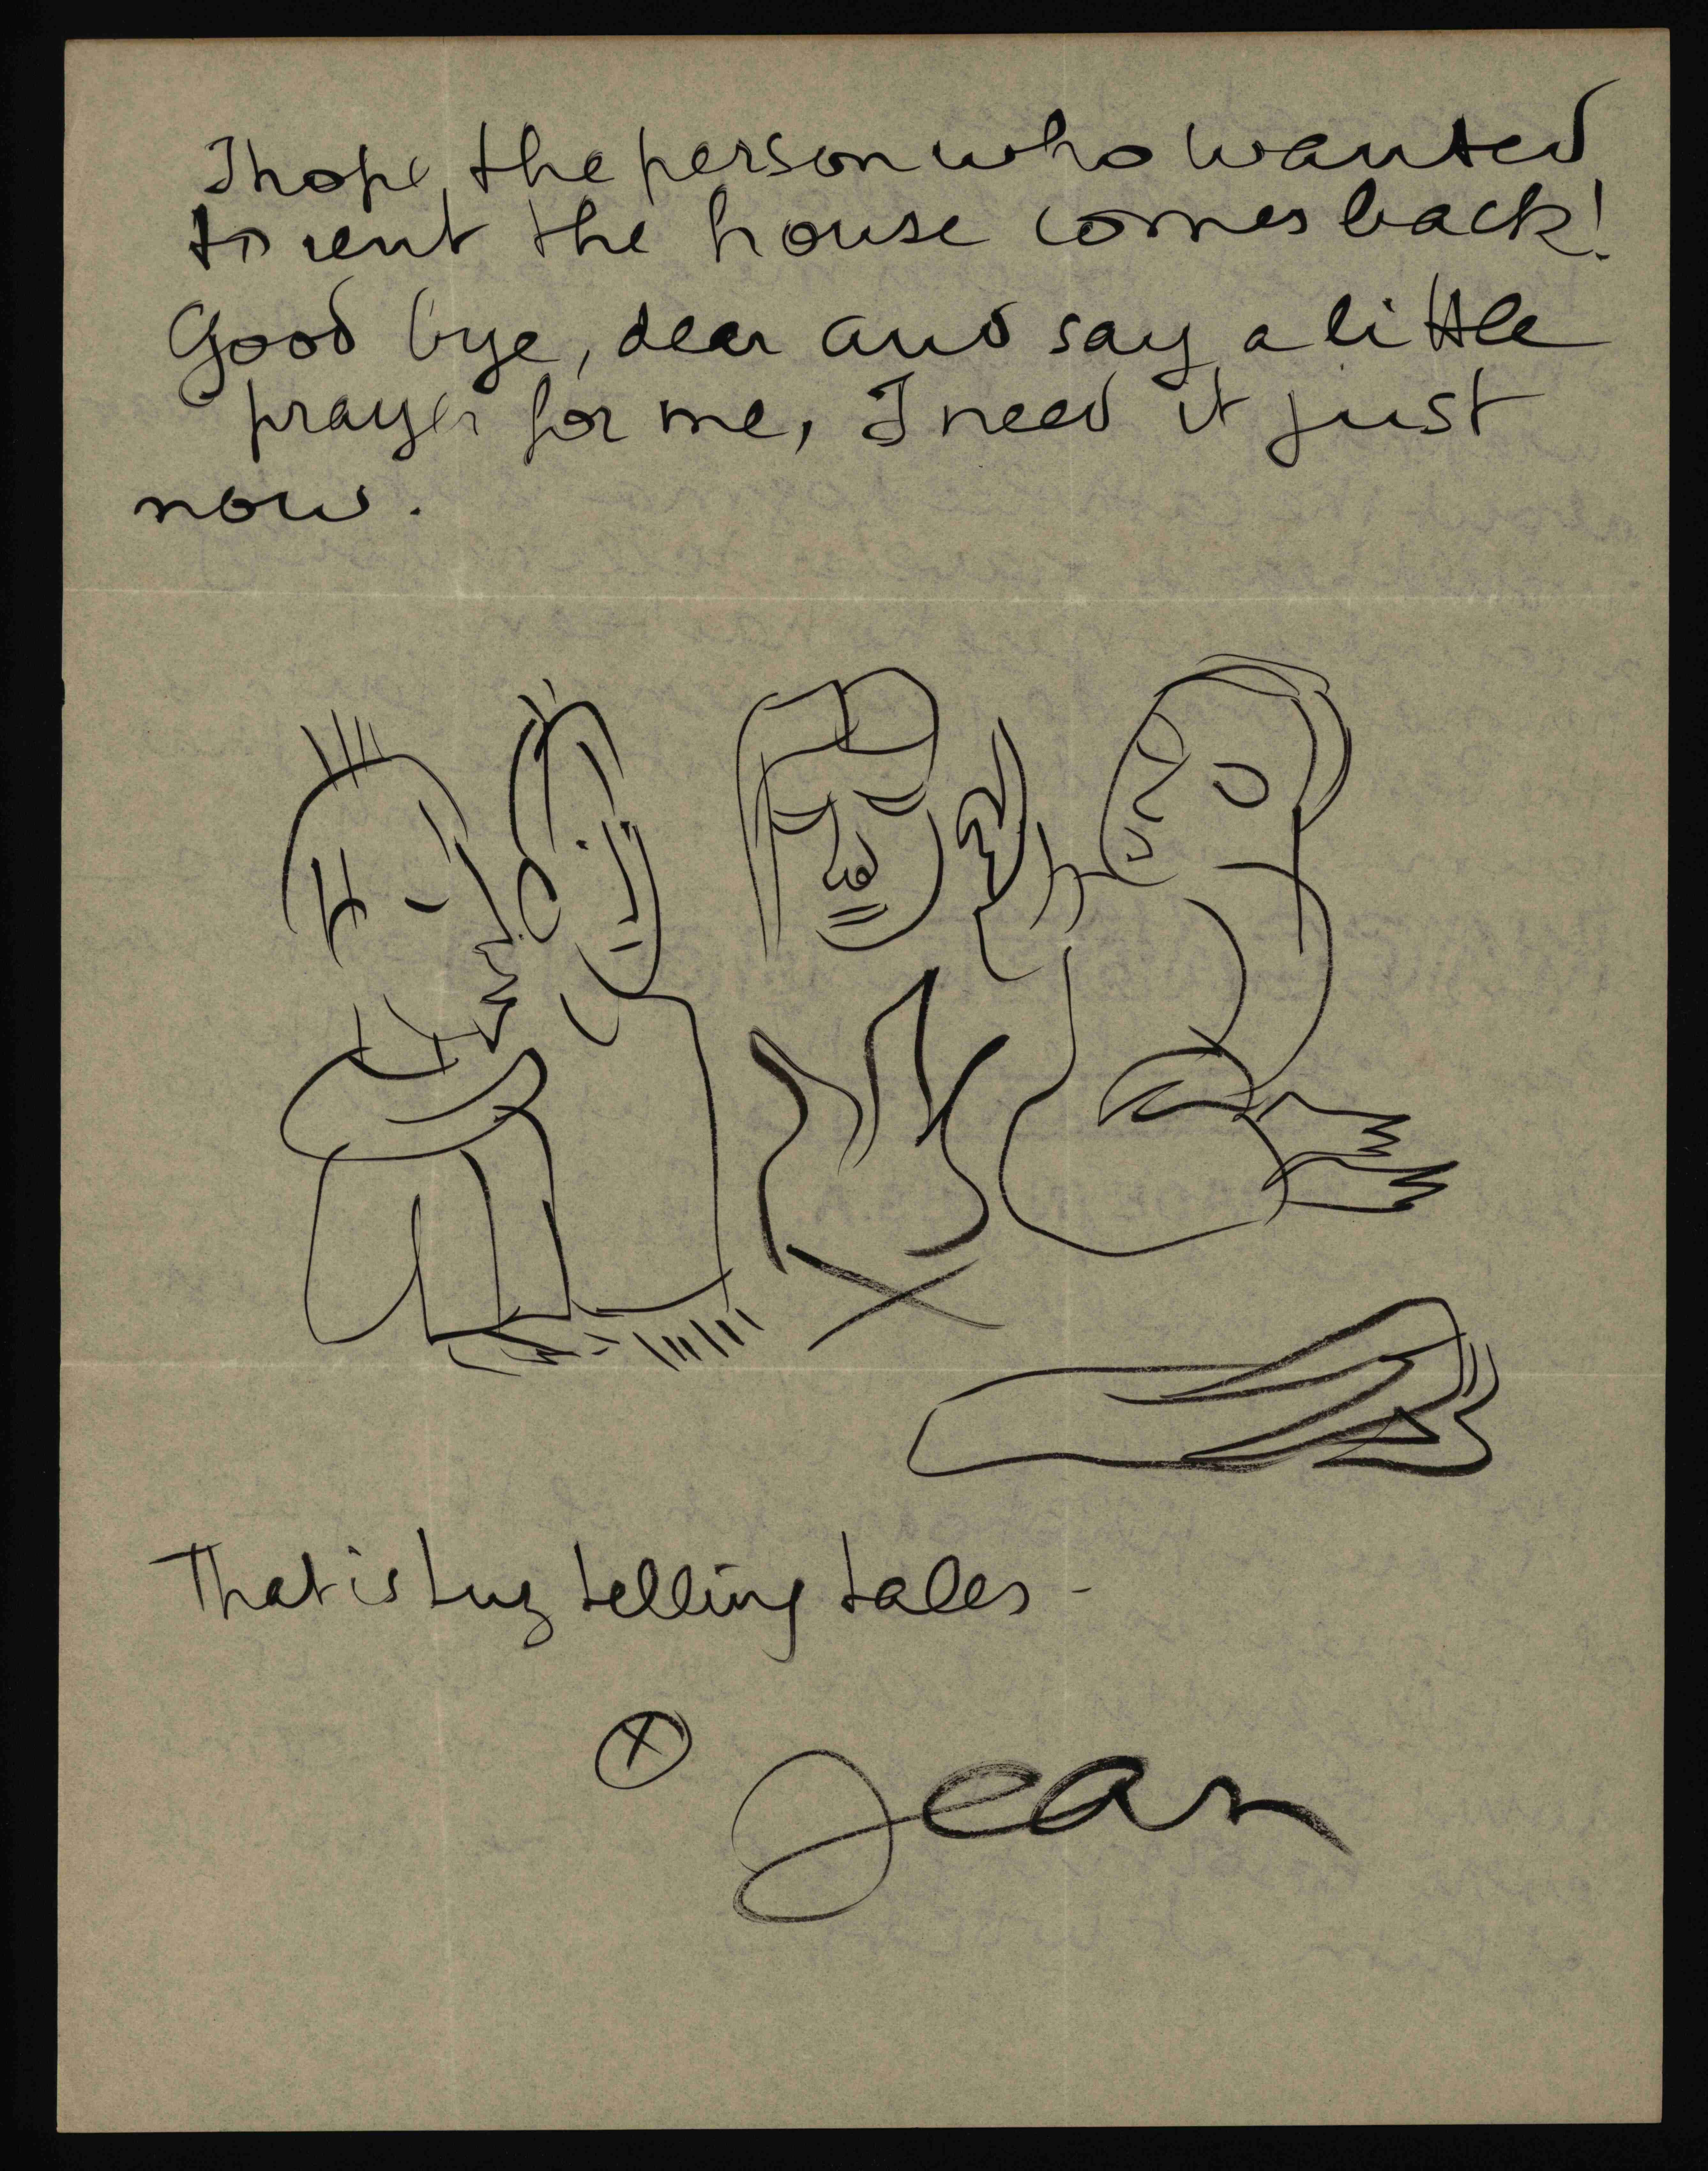 I hope, the person who wanted
to rent the house comes back!
Good bye, dear and say a little
prayer for me, I need it just
now.
That is Luz telling tales -
X Jean